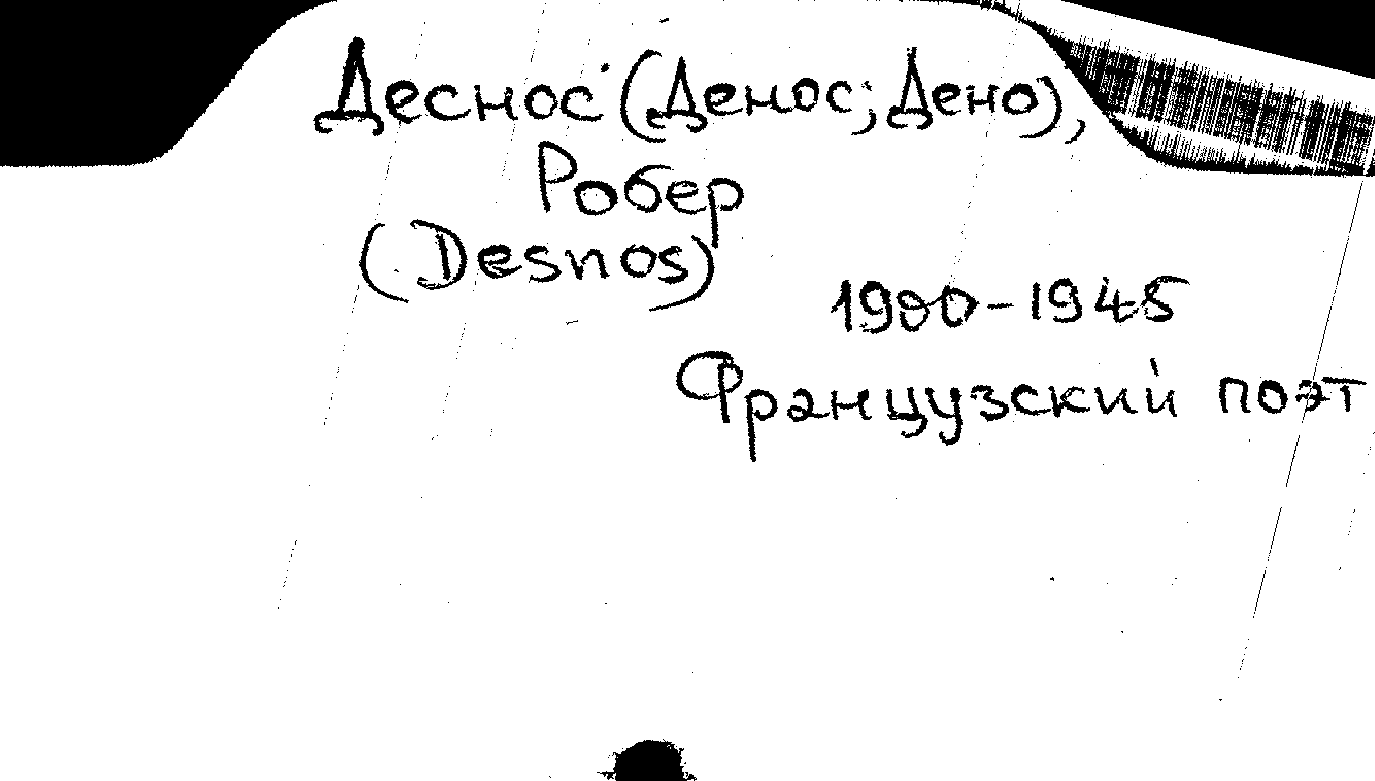 Деснос (Денос; Дено),
Робер
(Desnos)
1900-1945
Французский поэт